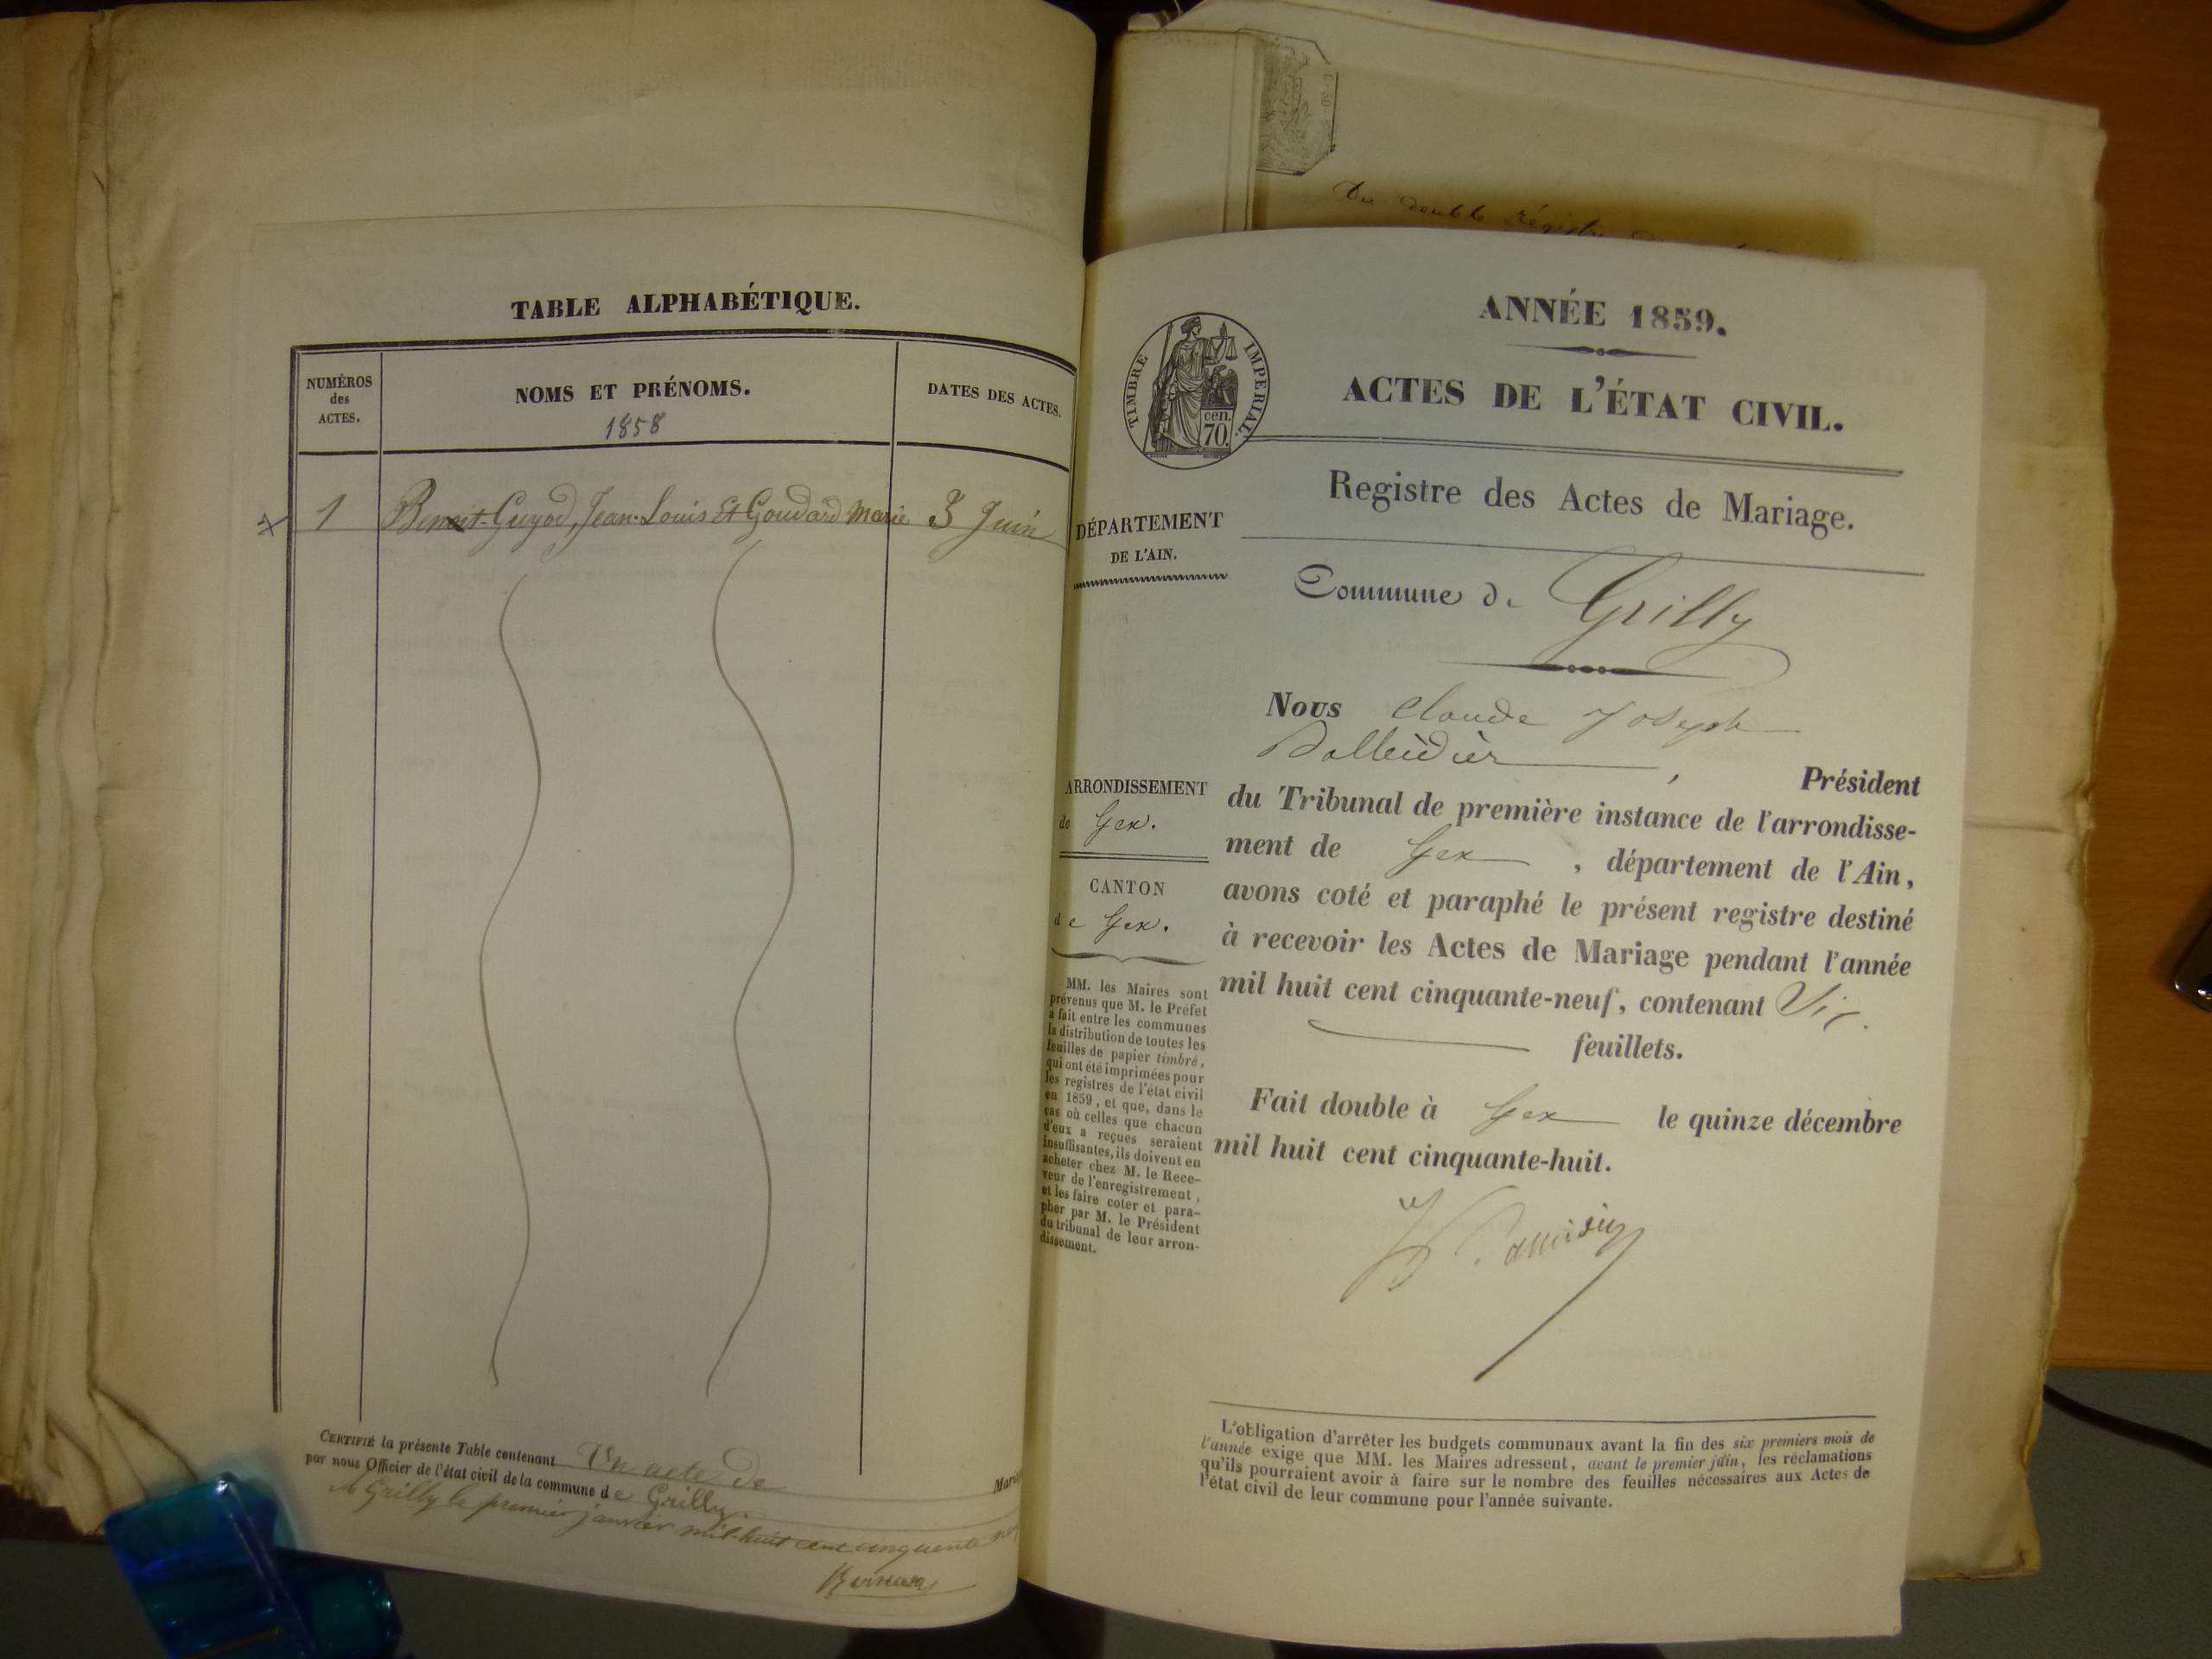 TABLE ALPHABÉTIQUE.
NUMÉROS
des
ACTES.
NOMS ET PRÉNOMS.
1858
DATES DES ACTES.
1 Benoit-Guyod, Jean-Louis Et Goudard Marie 3 Juin
CERTIFIÉ la présente Table contenant Un acte de
Maria
par nous Officier de l'état civil de la commune de Grilly.
A Grilly le premier janvier mil-huit cent cinquante
Du double régistre
ANNÉE 1859.
TIMBRE IMPERIAL.
cen.
70.
ACTES DE L'ÉTAT CIVIL.
Registre des Actes de Mariage.
DÉPARTEMENT
DE L'AIN.
Commune de Grilly
Nous Claude Joseph
, Président
ARRONDISSEMENT
de Gex.
CANTON
de Gex.
du Tribunal de première instance de l'arrondisse-
ment de Gex , département de l'Ain,
avons coté et paraphé le présent registre destiné
à recevoir les Actes de Mariage pendant l'année
mil huit cent cinquante-neuf, contenant Six
feuillets.
Fait double à Gex le quinze décembre
mil huit cent cinquante-huit.
MM. les Maires sont
prévenus que M. le Préfet
a fait entre les communes
la distribution de toutes les
feuilles de papier timbré,
qui ont été imprimées pour
les registres de l'état civil
en 1859, et que, dans le
cas où celles que chacun
d'eux a reçues seraient
insuffisantes, ils doivent en
acheter chez M. le Rece-
veur de l'enregistrement,
et les faire coter et para-
pher par M. le Président
du tribunal de leur arron-
dissement.
L'obligation d'arrêter les budgets communaux avant la fin des six premiers mois de
l'année exige que MM. les Maires adressent, avant le premier juin, les réclamations
qu'ils pourraient avoir à faire sur le nombre des feuilles nécessaires aux Actes de
l'état civil de leur commune pour l'année suivante.